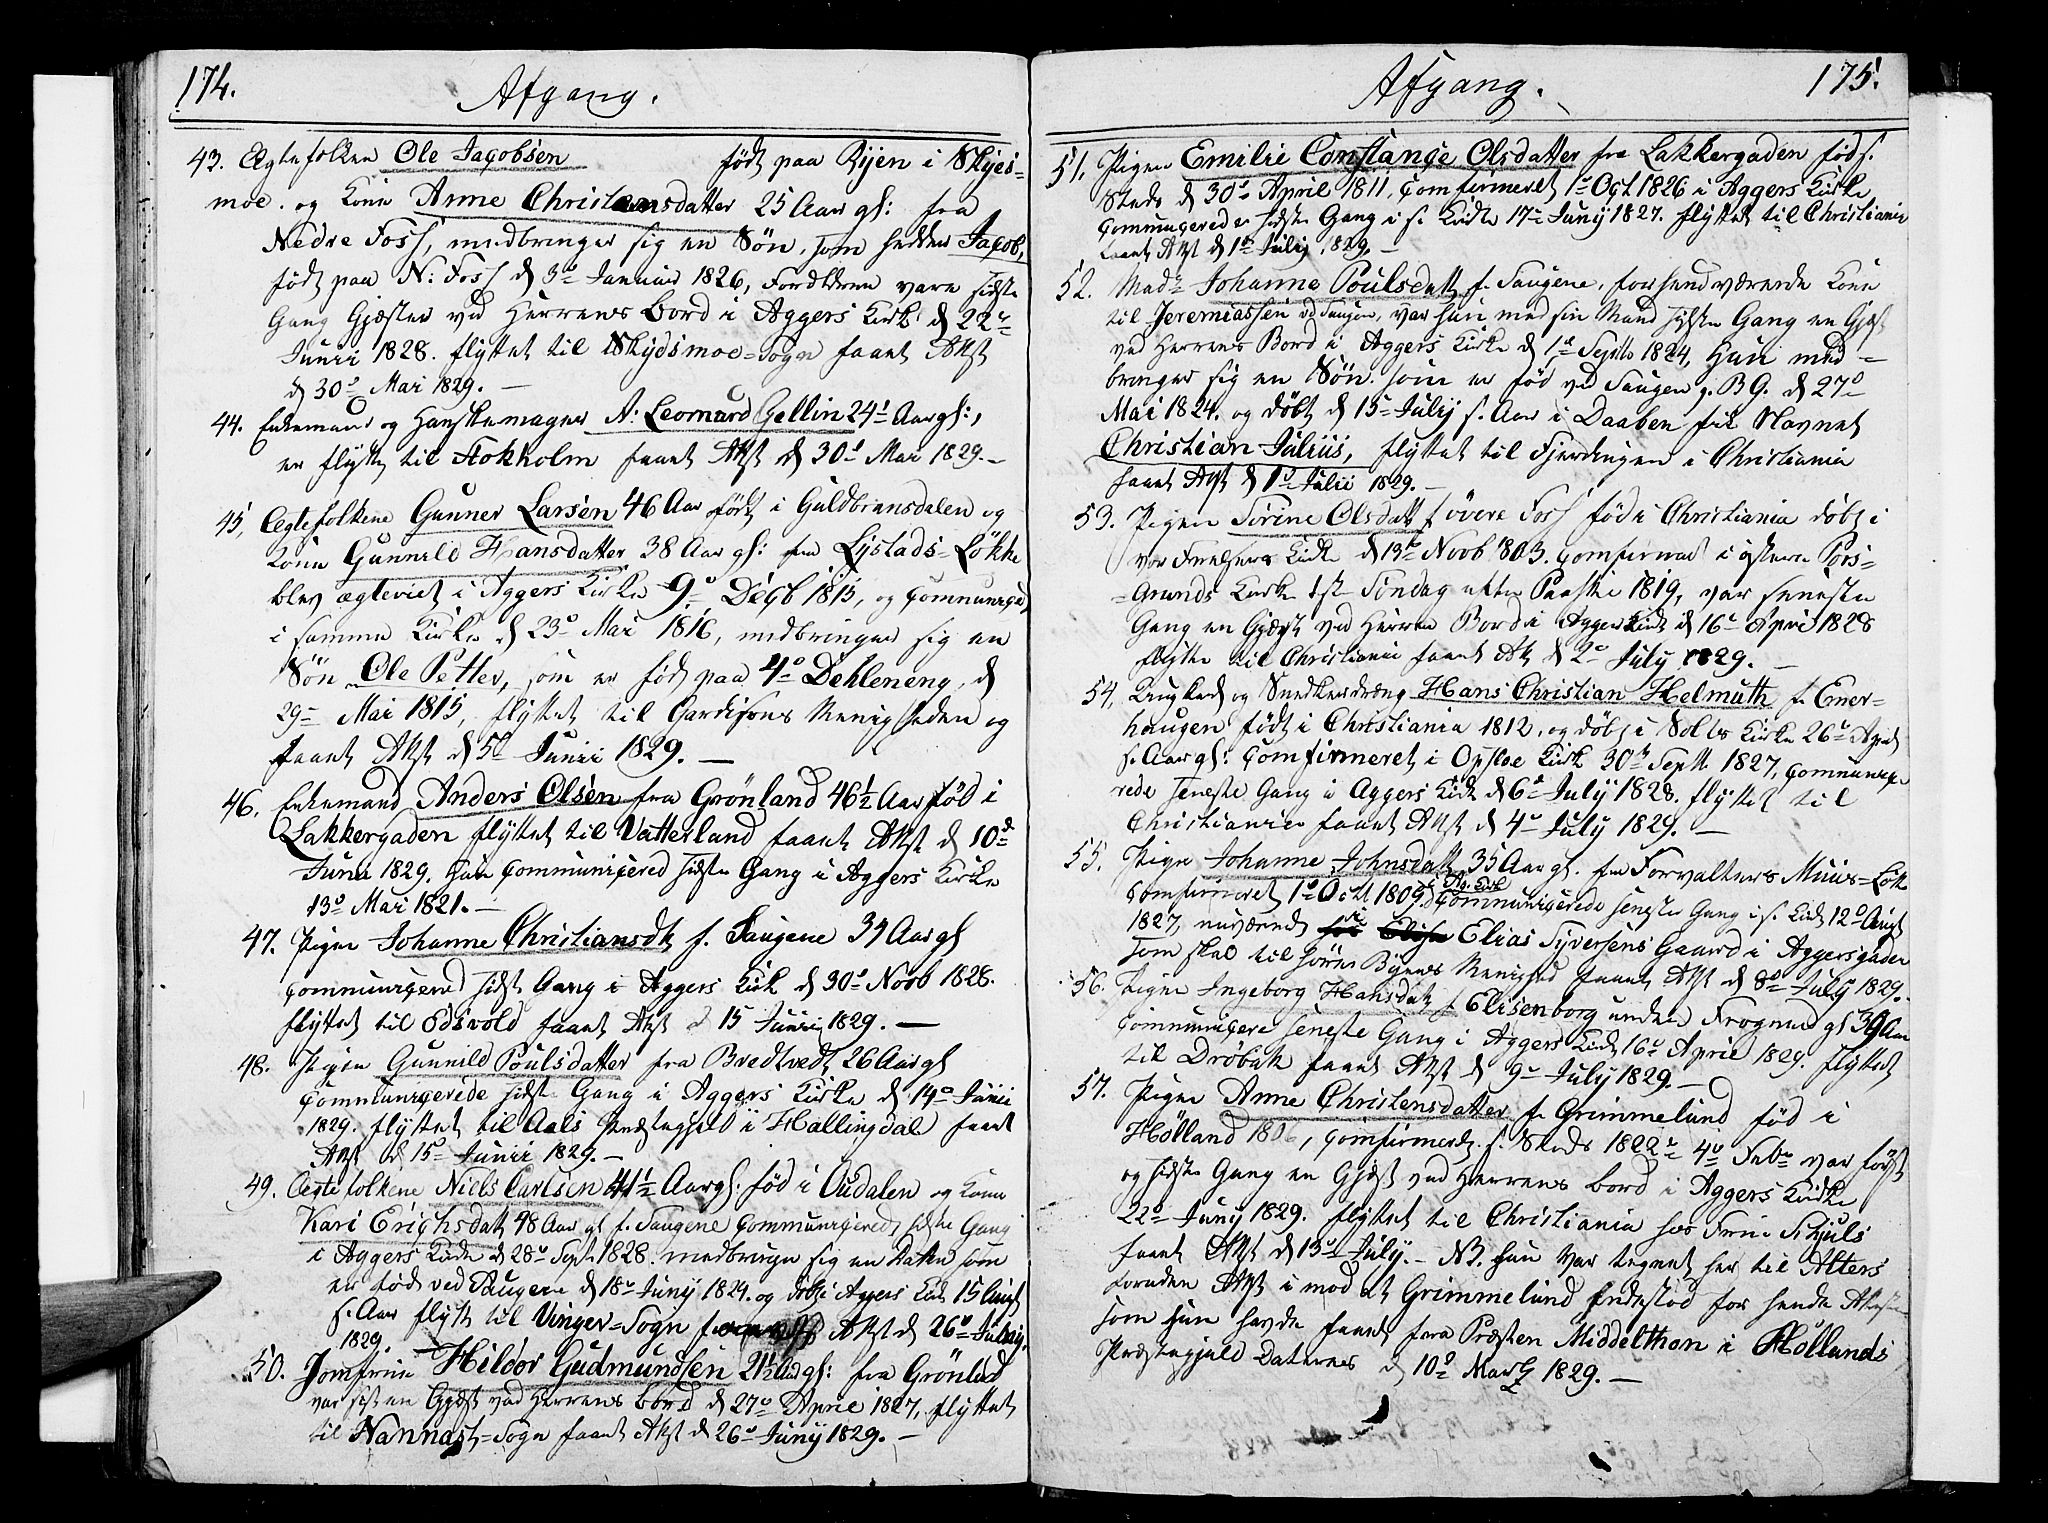 174.
Afgang.
43. Ægtefolken Ole Jacobsen født paa Ryen i Skjeds-
moe. og Kone Anne Christensdatter 25 Aar gl: fra
Nedre Foss, medbringer sig en Søn, som hedder Jacob,
født paa N: Foss d 3die Januar 1826, Forældrene vare sidste
Gang Gjæster ved Herrens Bord i Aggers Kirke d 22de
Junii 1828. flyttet til Skydsmoe-Sogn faaet Attst
d 30te Mai 1829.
44. Enkemand og Handskemager A: Leonard Gellin 24 Aar gl:,
er flyttet til Stokholm faaet Attst d 30te Mai 1829.
45. Ægtefolkene Gunner Larsen 46 Aar født i Guldbransdalen og
Kone Gunnild Hansdatter 38 Aar gl: fra Lystads-Løkke
blev ægteviet i Aggers Kirke 9de Decb 1815, og Communicered
i samme Kirke d 23de Mai 1816, medbringer sig en
Søn Ole Petter, som er født paa Dehleneng, d
29de Mai 1815, flyttet til Gardisons Menigheden og
faaet Attst d 5te Junii 1829.
46. Enkemand Anders Olsen fra Grønland 46½ Aar fød i
Lakkergaden flyttet til Vatterland faaet Attst d 10de
Junii 1829. Han Communicered sidste Gang i Aggers Kirke
13de Mai 1821.
47. Pigen Johanne Christiansdt f. Saugene 34 Aar gl
Communicered sidste Gang i Aggers Kirk d 30te Novb 1828.
flyttet til Edsvold faaet Attst d 15 Junii 1829.
48. Pigen Gunnild Poulsdatter fra Bredtvedt 26 Aar gl
Communicerede sidste Gang i Aggers Kirke d 14de Junii
1829. flyttet til Aals Præstegjeld i Hallingdal faaet
Attst d 15de Junii 1829.
49. Ægtefolkene Niels Carlsen 41½ Aar gl: fød i Oudalen og Kone
Kari Erichsdatt 48 Aar gl f. Saugene Communicered sidste Gang
i Aggers Kirke d 28de Sept 1828. medbringer sig en Datter som
er født ved Saugene d 18de Juny 1824. og døbt i Aggers Kirk 15 Augt
s. Aar flytt til Vinger-Sogn Attst d 26de
1829.
50. Jomfrue Hildør Gudmundsen 21½ Aar gl: fra Grønland
var sidst en Gjæst ved Herrens Bord d 27de April 1827, flyttet
til Nannast-Sogn faaet Attst d 26de Juny 1829.
Afgang.
175.
51. Pigen Emilie Constance Olsdatter fra Lakkergaden fød s.
Steds d 30te April 1811, Comfirmeret 1te Oct 1826 i Aggers Kirke
Communicerede sidste Gang i s. Kirke 17de Juny 1827. flyttet til Christiania
faaet Attst d 1te Julij 1829.
52. Mad: Johanne Poulsdatt f. Saugene, forhenværende Kone
til Jeremiassen v Saugen, var hun med sin Mand sidste Gang en Gjæst
ved Herrens Bord i Aggers Kirke d 1te Septb 1824, Hun med-
bringer sig en Søn som er fød ved Saugen d 27de
Mai 1824. og døbt d 15de July s. Aar i Daaben fik Navnet
Christian Julius, flyttet til Fjerdingen i Christiania
faaet Attst d 1te Julii 1829.
53. Pigen Sørine Olsdatt f øvere Foss fød i Christiania døbt i
Vor Frelsers Kirke d 13de Novb 1803. Comfirmet i østere Pors-
-Grunds Kirke 1ste Søndag efter Paaske 1819, var seneste
Gang en Gjæst ved Herrens Bord i Aggers Kirk d 16de April 1828
flytte til Christiania faaet At d 2de July 1829.
54. Ungkarl og Snedkerdreng Hans Christian Helmuth f. Ener-
haugen født i Christiania 1812. og døbt i Kirke 26de April
s. Aar gl: Comfirmeret i Opsloe Kirk 30te Septb 1827, Communice-
rede seneste Gang i Aggers Kirk d 6te July 1828. flyttet til
Christiania faaet Attst d 4de July 1829.
55. Pige Johanne Johnsdatt 35 Aar gl. fra Forvalters Muus-Løk
Comfirmeret 1te Oct 1809, Ag: Kirk Communicerede seneste Gang i s. Kirk 12te Augt
1827, nuværende i Elias Syversens Gaard i Aggersgaden
som skal til Søren Byens Menighed faaet Attst d 8de July 1829.
56. Pigen Ingeborg Hansdatt f Elisenborg under Frogner gl 39 Aar
Communicere seneste Gang i Aggers Kirk 16de April 1829. flyttet
til Drøbak faaet Attst d 9de July 1829.
57. Pigen Anne Christensdatter f. Grimmelund fød i
Hølland 1806, Comfirmeret s. Steds 1822 4de Febr var først
og sidste Gang en Gjæst ved Herrens Bord i Aggers Kirke
22de Juny 1829. flyttet til Christiania hos
faaet Attst d 13de July. NB. hun var tegnet her til Alters
foruden Attst i mod at Grimmelund indestod for hende Attesten
som hun havde faaet fra Præsten Middelthon i Høllands
Præstegjeld Dateres d 10de Martz 1829.